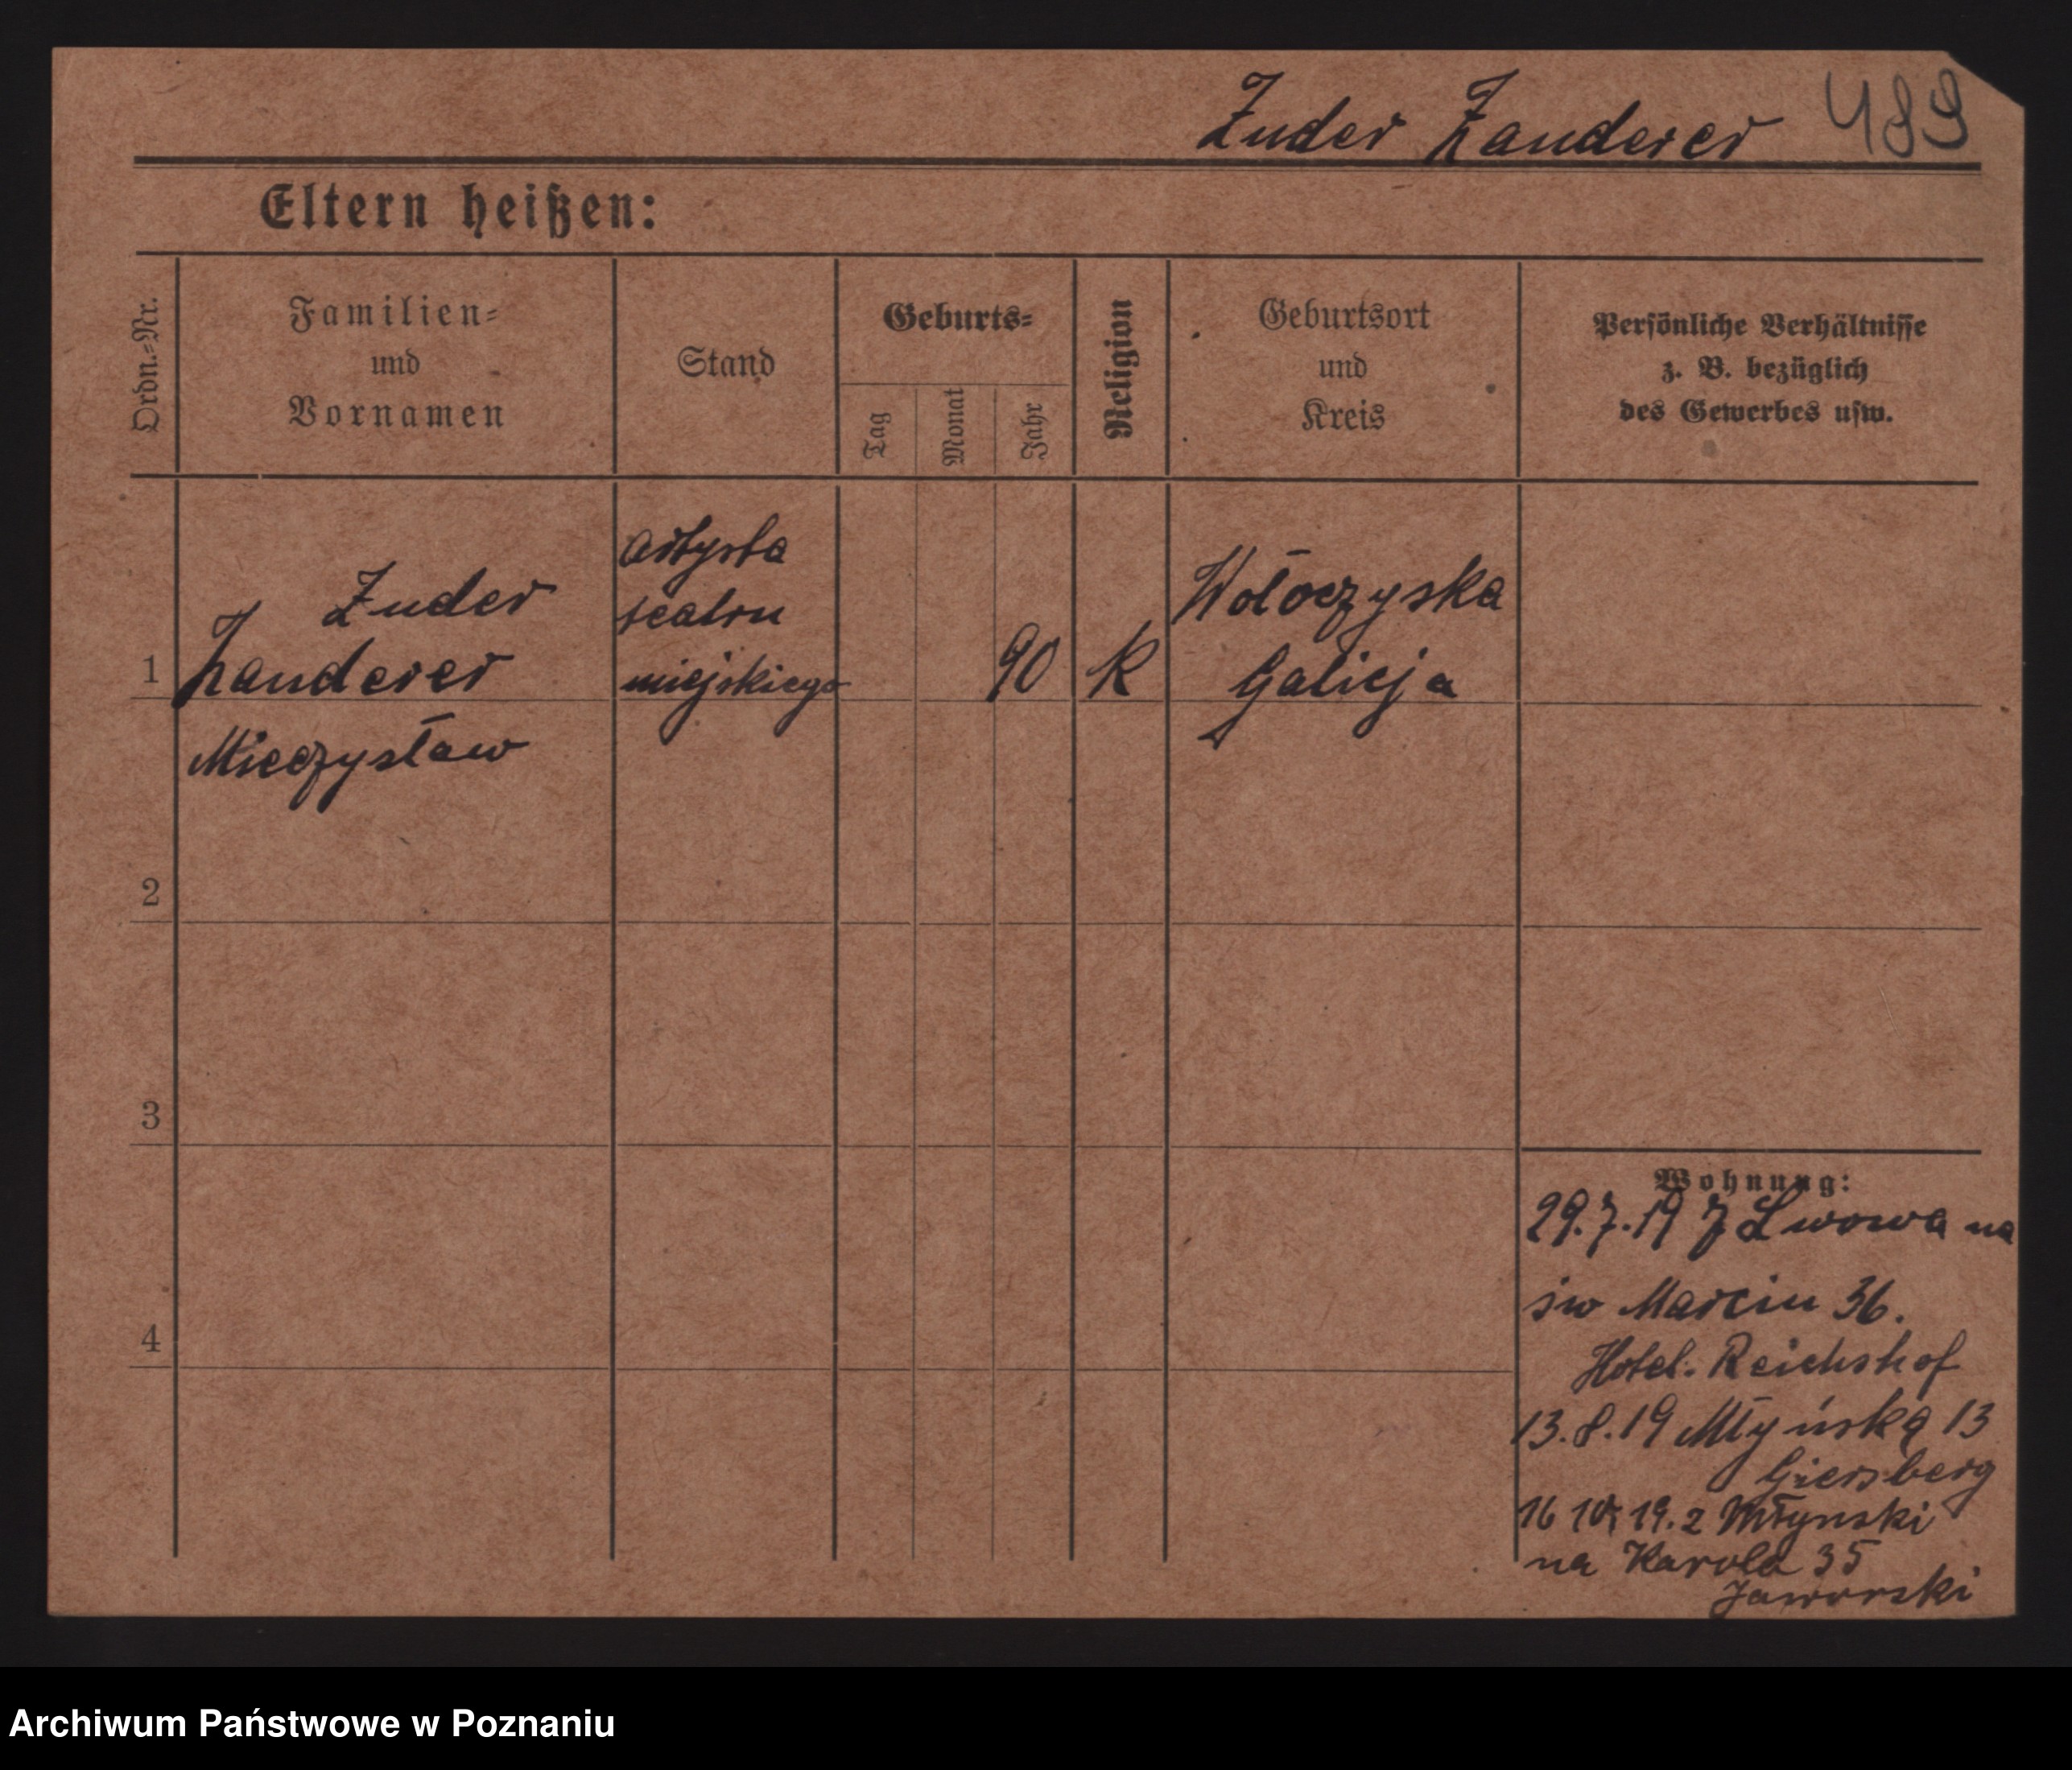 Zuder Zanderer 489
Eltern heißen:
Ordn.-Nr.
Familien-
und
Vornamen
Stand
Geburts-
Tag
Monat
Jahr
Religion
Geburtsort
und
Kreis
Persönliche Verhältnisse
z. B. bezüglich
des Gewerbes usw.
1
Zuder
Zanderer
Mieczysław
artysta
teatru
miejskiego
90
K
Wołoczyska
Galicja
2
3
4
Wohnung:
29.7.19 z Lwowa na
św Marcin 36.
Hotel. Reichshof
13.8.19 Młyńską 13
Giersberg
16 10. 19. z Młynski
na Karola 35
Jaworski
Archiwum Państwowe w Poznaniu